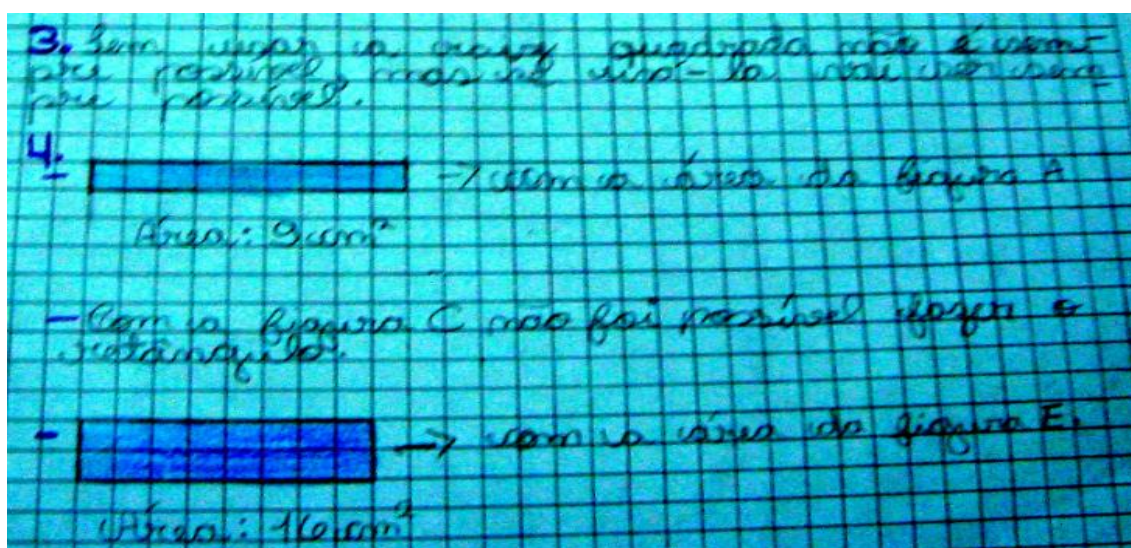 3. Sem usar a raiz quadrada não é sem-
pre possível, mas se usá-la vai ser sem-
pre possível.
4.
→ com a área da figura A
Área: 9 cm²
- Com a figura C não foi possível fazer o
retângulo.
- → com a área da figura E.
Área: 16 cm²